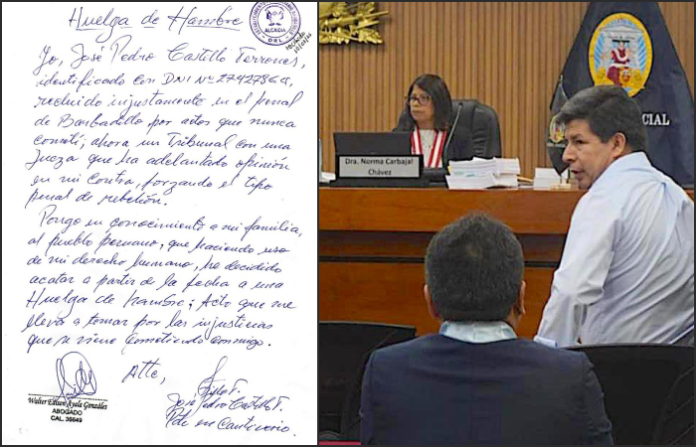 Huelga de Hambre
ALCAIDIA
Yo, José Pedro Castillo Terrones,
identificado con DNI Nº
recluido injustamente en el penal
de Barbadillo por actos que nunca
cometí; ahora un Tribunal con una
Jueza que ha adelantado opinión
en mi contra, forzando el tipo
penal de rebelión.
Pongo en conocimiento a mi familia,
al pueblo peruano, que haciendo uso
de mi derecho humano, he decidido
acatar a partir de la fecha a una
Huelga de hambre; Acto que me
lleva a tomar por las injusticias
que se viene cometiendo conmigo.
Atte,
Walter Edison Ayala Gonzáles
ABOGADO
CAL. 35649
José Pedro Castillo T.
Pdte en Cautiverio.
Dra. Norma Carbajal
Chávez
CIAL